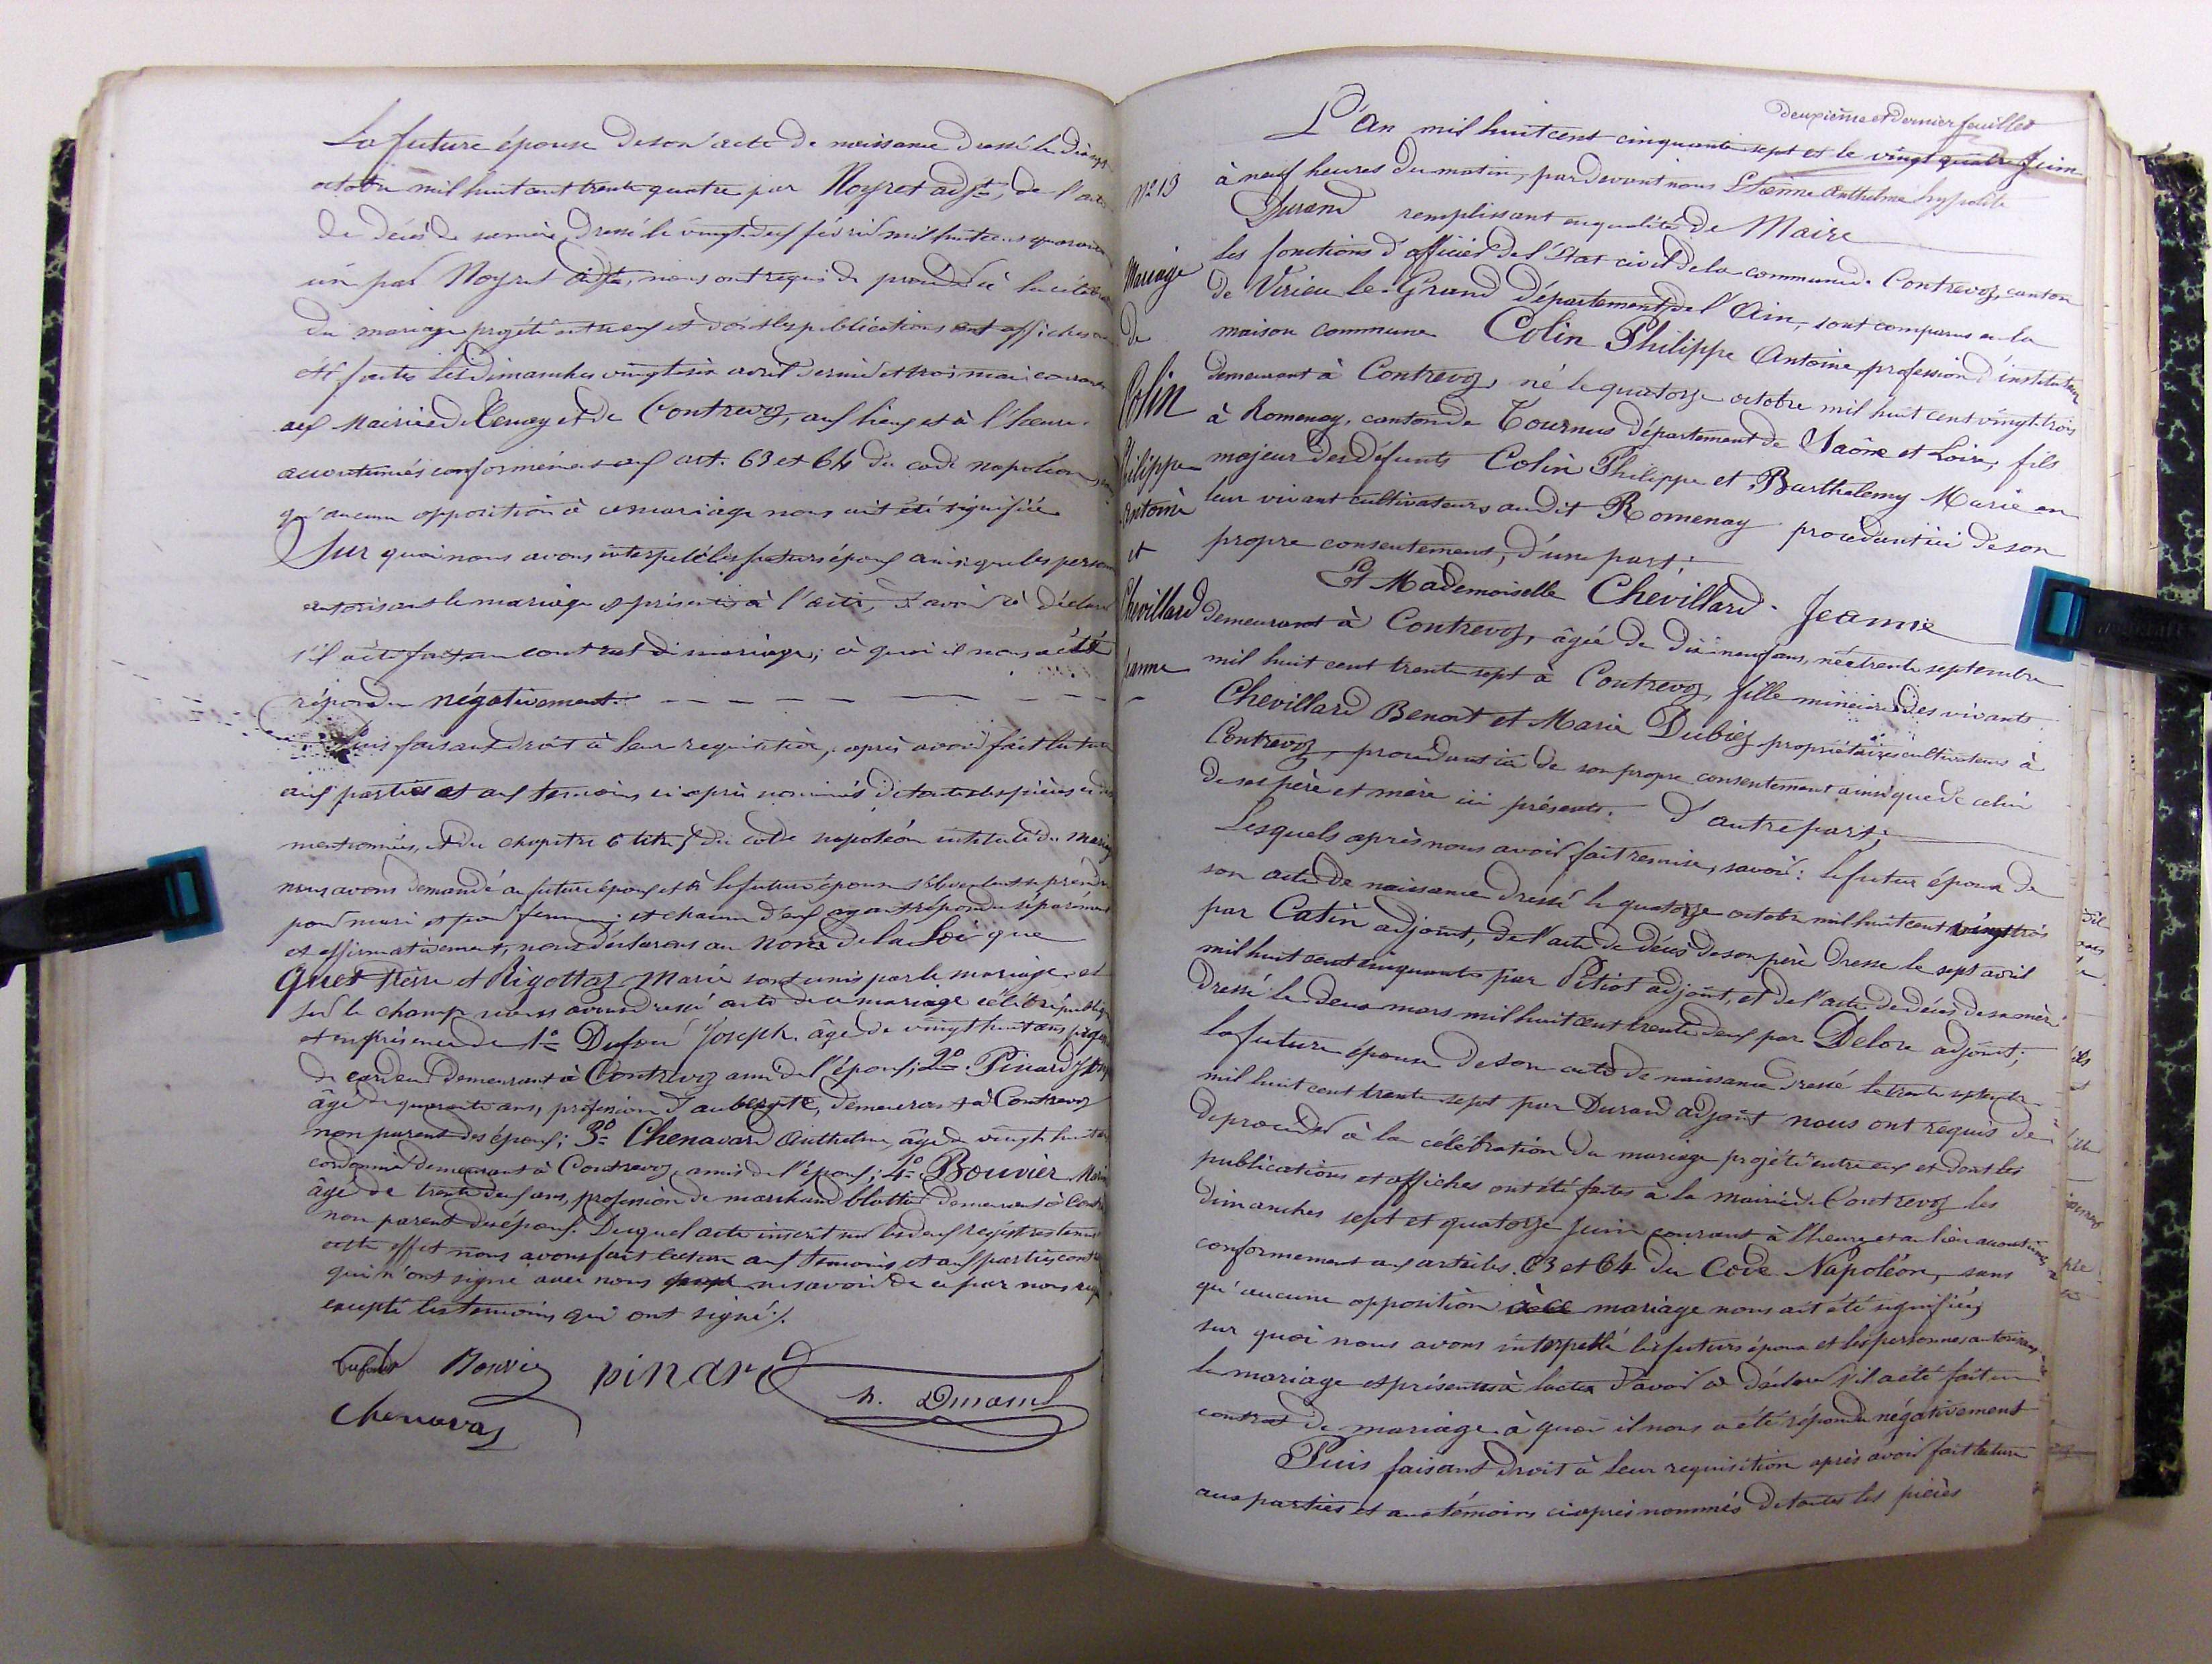 La future épouse de son acte de naissance dressé le
octobre mil huit cent trente quatre par Noyret adjt, de l'acte
de décès de sa mère dressé le vingt deux février mil huit cent quarante
un par Noyret adjt, nous ont requis de procéder à la célébration
du mariage projété entre eux et dont les publications et affiches ont
été faites les dimanches vingt six avril dernier et trois mai courant
aux Mairies de Tenay et de Contrevoz, aux lieux et à l'heure
accoutumés conformément aux art. 63 et 64 du code napoléon,
qu'aucune opposition à ce mariage nous ait été signifiée
Sur quoi nous avons interpellé les futurs époux ainsi que les personnes
autorisant le mariage et présentes à l'acte, d'avoir à déclarer
s'il a été fait un contrat de mariage; à quoi il nous a été
répondu négativement. — — — — — —
Puis faisant droit à leur requisition, après avoir fait lecture
aux parties et aux temoins ci après nommés de toutes les pièces ci
mentionnées, et du chapitre 6 titre 5 du code napoléon intitulé du mariage
nous avons demandé au futur époux et à la future épouse s'ils veulent se prendre
pour mari et pour femme; et chacun d'eux ayant répondu séparément
et affirmativement, nous déclarons au nom de la Loi que
Guet Pierre et Rigottaz Marie sont unis par le mariage et
sur le champ nous avons dressé acte de ce mariage célébré
et en présence de 1º Dufour Joseph, âgé de vingt huit ans
de cardeur demeurant à Contrevoz ami de l'époux; 2º Pinard
âgé de quarante ans, profession d'aubergiste, demeurant à Contrevoz
non parent des époux; 3º Chenavard Anthelme, âgé de vingt huit ans
cordonnier demeurant à Contrevoz, amis de l'époux; 4º Bouvier
âgé de trente deux ans, profession de marchand blattier demeurant à
non parent des époux. Duquel acte inscrit sur les deux registres tenus
cette effet nous avons fait lecture aux temoins et aux parties
qui n'ont signé avec nous ne savoir de ce par nous
excepté les temoins qui ont signé.
Dufour Bouvier pinard
h. Durand
Chenavas
deuxième et dernier feuillet
L'An mil huit cent cinquante sept et le vingt quatre Juin
Nº 13 à neuf heures du matin, par devant nous Etienne Anthelme hyppolite
Durand remplissant en qualité de Maire
les fonctions d'officier de l'état civil de la commune de Contrevoz, canton
Mariage de Virieu le Grand département de l'Ain, sont comparus en la
de maison commune Colin Philippe Antoine, profession d'instituteur
Colin demeurant à Contrevoz, né le quatorze octobre mil huit cent vingt trois
à Romenay, canton de Tournus département de Saône et Loire, fils
Philippe majeur des défunts Colin Philippe et Barthelemy Marie en
Antoine leur vivant cultivateurs audit Romenay procédant ici de son
et propre consentement, d'une part;
Et Mademoiselle Chevillard Jeanne
Chevillard demeurant à Contrevoz, âgée de dix neuf ans, née trente septembre
Jeanne mil huit cent trente sept à Contrevoz, fille mineure des vivants
Chevillard Benoit et Marie Dubiez propriétaires cultivateurs à
Contrevoz, procédant ici de son propre consentement ainsi que de celui
de ses père et mère ici présents. D'autre part;
Lesquels après nous avoir fait remise, savoir: le futur époux de
son acte de naissance dressé le quatorze octobre mil huit cent vingt trois
par Catin adjoint, de l'acte de décès de son père dressé le sept avril
mil huit cent cinquante par Petiot adjoint, et de l'acte de décès de sa mère
dressé le deux mars mil huit cent trente deux par Delore adjoint;
la future épouse de son acte de naissance dressé le trente septembre
mil huit cent trente sept par Durand adjoint nous ont requis de
de procéder à la célébration du mariage projété entre eux et dont les
publications et affiches ont été faites à la mairie de Contrevoz les
dimanches sept et quatorze Juin courant à l'heure et au lieu accoutumés
conformement aux articles 63 et 64 du Code Napoléon, sans
qu'aucune opposition à ce mariage nous ait été signifiée,
sur quoi nous avons interpellé les futurs époux et les personnes autorisant
le mariage et présentes à l'acte d'avoir à déclarer s'il a été fait un
contrat de mariage à quoi il nous a été répondu négativement
Puis faisant droit à leur requisition après avoir fait lecture
aux parties et aux témoins ci après nommés de toutes les pièces